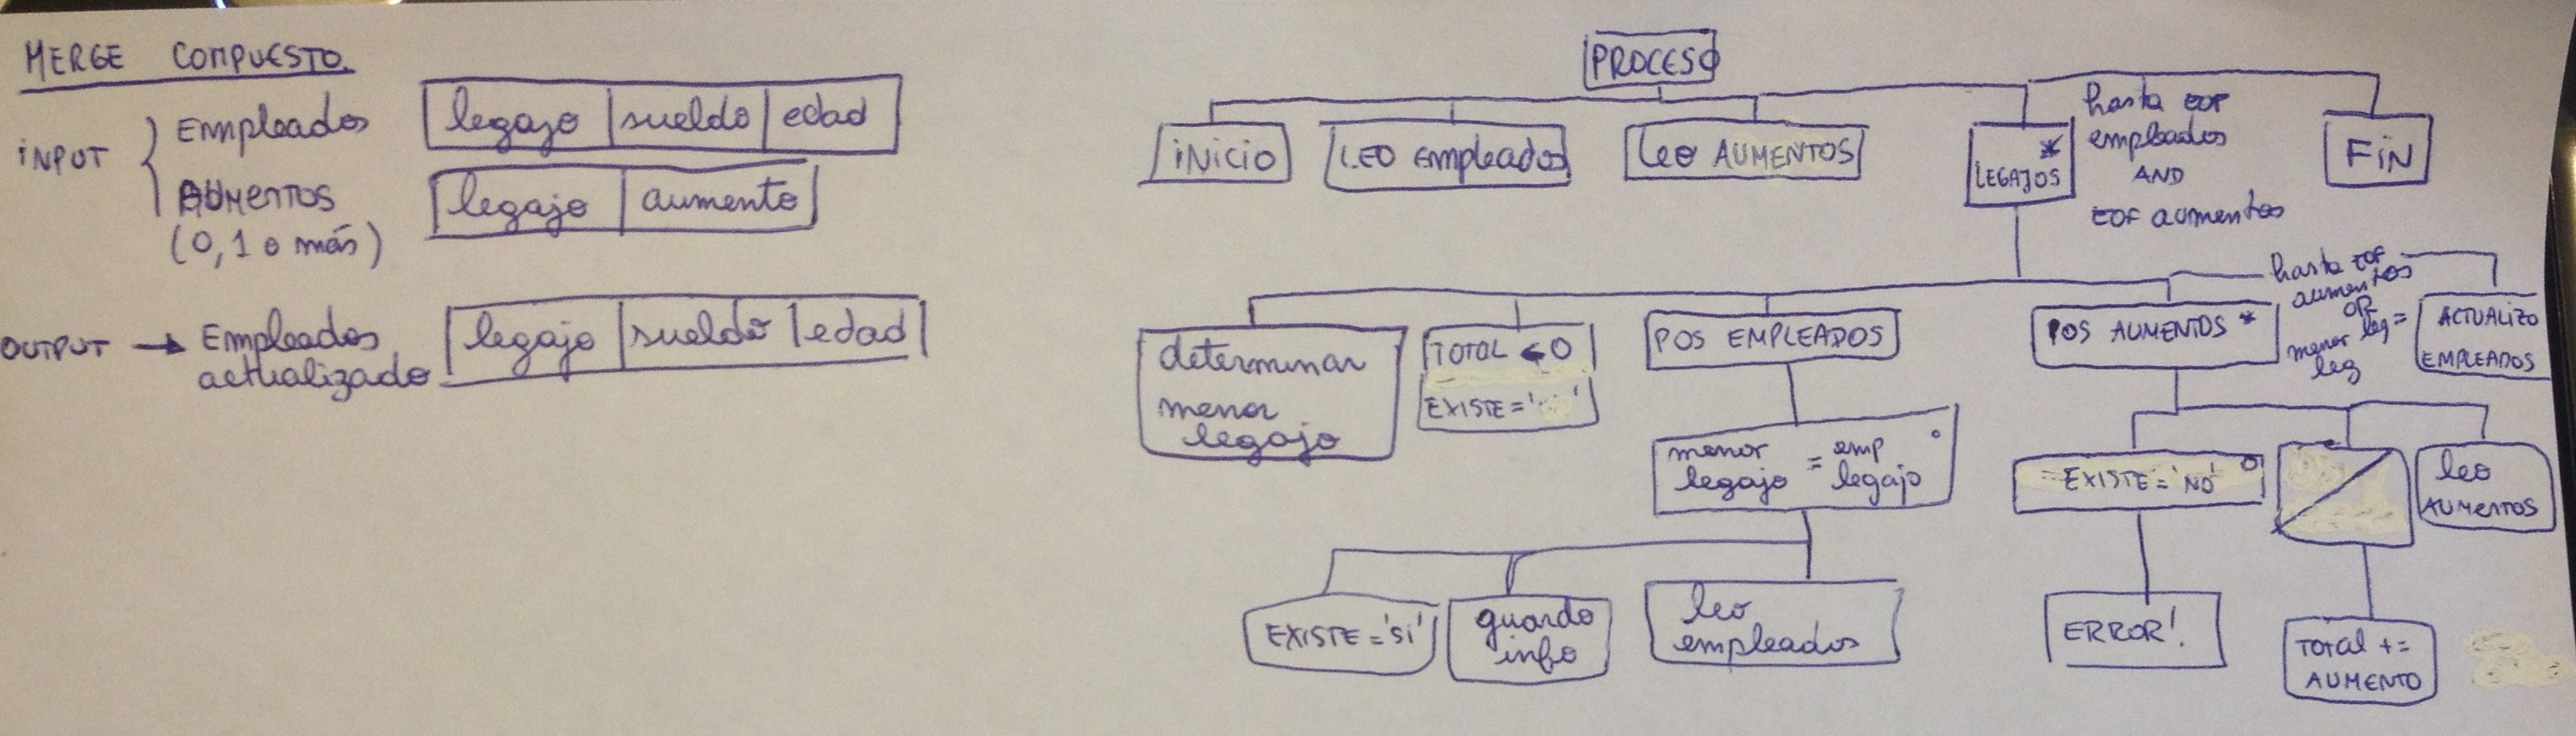 MERGE COMPUESTO
INPUT
Empleados
legajo sueldo edad
AUMENTOS
legajo aumento
(0, 1 o más)
OUTPUT → Empleados
actualizado
legajo sueldo edad
PROCESO
INICIO
LEO Empleados
leo AUMENTOS
*
LEGAJOS
hasta EOF
empleados
AND
EOF aumentos
FIN
determinar
menor
legajo
TOTAL ← 0
EXISTE = '
POS EMPLEADOS
POS AUMENTOS *
hasta EOF
aumentos
OR
menor leg =
leg
ACTUALIZO
EMPLEADOS
menor
legajo = emp
legajo
EXISTE = 'NO'
leo
AUMENTOS
EXISTE = 'SI'
guardo
info
leo
empleados
ERROR!
TOTAL +=
AUMENTO